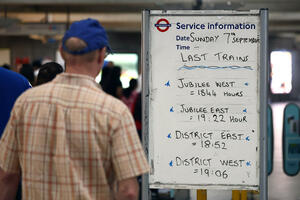 Service information
Date SUNDAY 7th SEPTEMBER
Time –
LAST TRAINS
JUBILEE WEST
= 1844 HOURS
JUBILEE EAST
= 19:22 HOUR
DISTRICT EAST
= 18:52
DISTRICT WEST
= 19:06